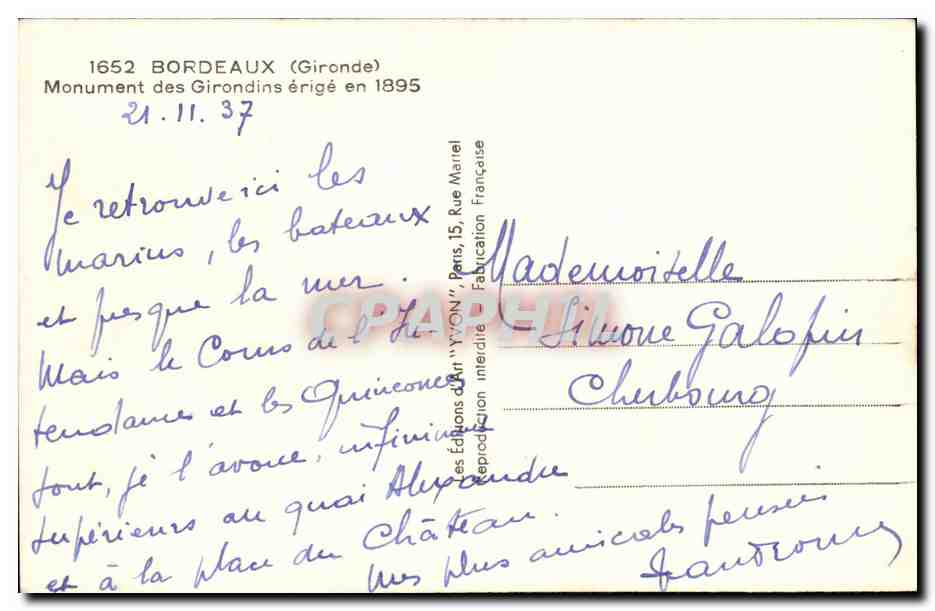 1652 BORDEAUX (Gironde)
Monument des Girondins érigé en 1895
21.11.37
Je retrouve ici les
marins, les bateaux
et presque la mer.
Mais le Cours de l'In-
tendance et les Quinconces
sont, je l'avoue, infiniment
supérieurs au quai Alexandre
et à la place du Château.
Mes plus amicales pensées
Les Éditions d'Art "YVON", Paris, 15, Rue Martel
Reproduction interdite - Fabrication Française
Mademoiselle
Simone Galopin
Cherbourg
CPAPHIL